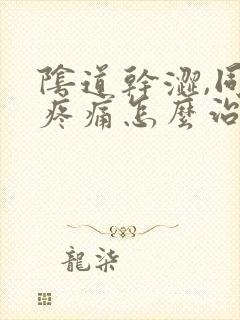 陰道幹澀,同
疼痛怎麼治
龍柒